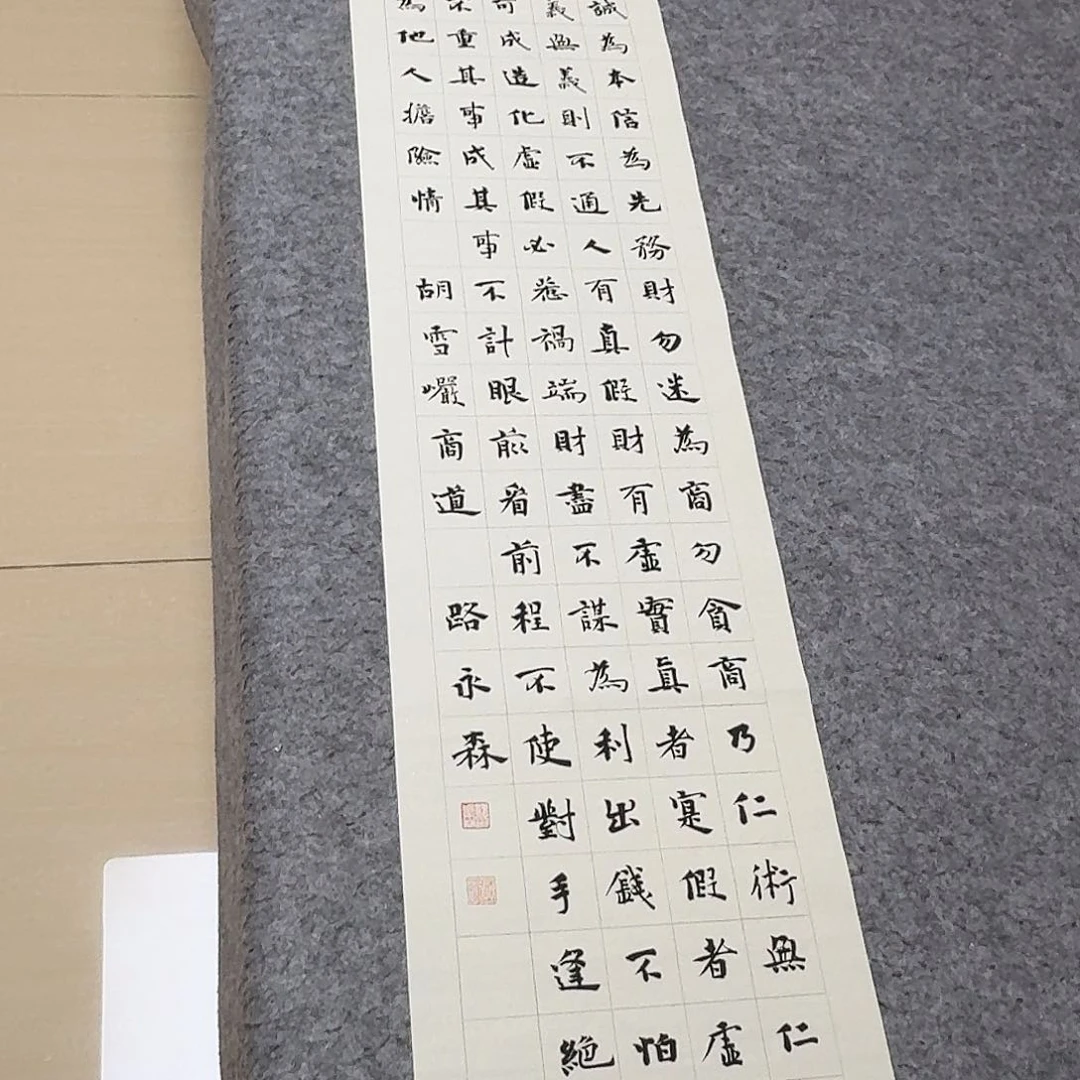 誠為本信為先務財勿迷為商勿貪商乃仁術無仁
義無義則不通人有真假財有虛實真者寔假者虛
可成造化虛假必惹禍端財盡不謀為利出錢不怕
不重其事成其事不計眼前看前程不使對手逢絕
為他人擔險情
胡雪巖商道
路永森